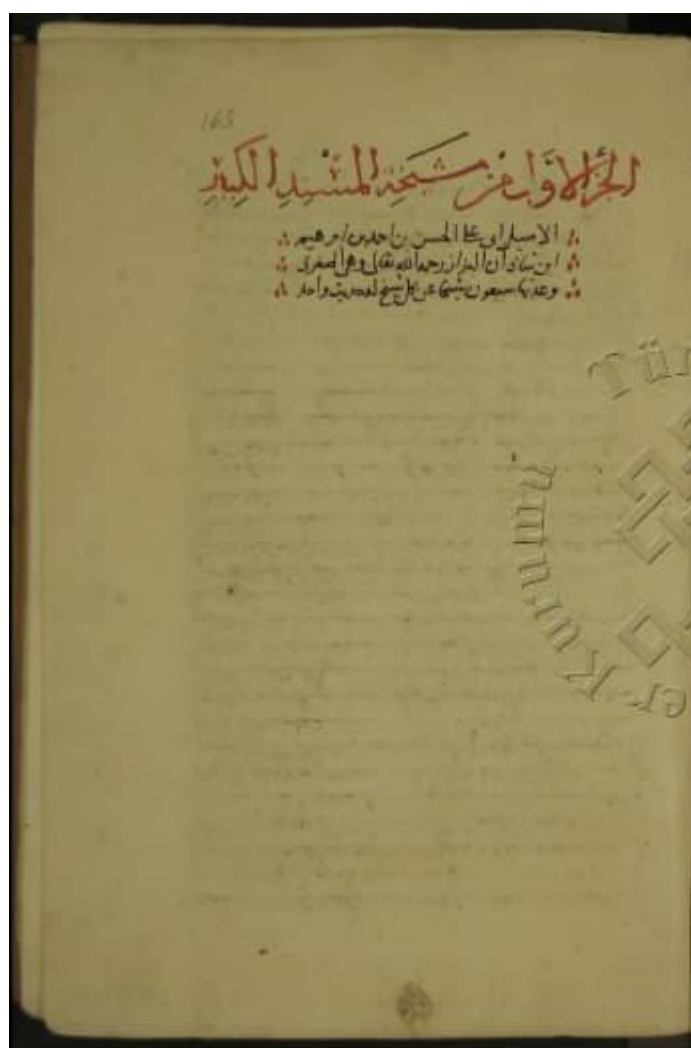 163
الجزء الاول من مشيخة المسند الكبير
الاستاد ابى على الحسن بن احمد بن ابرهيم
ابن شاذان البزاز رحمه الله تعالى وهى الصغرى
وعدتها سبعون شيخا عن كل شيخ له حديث واحد